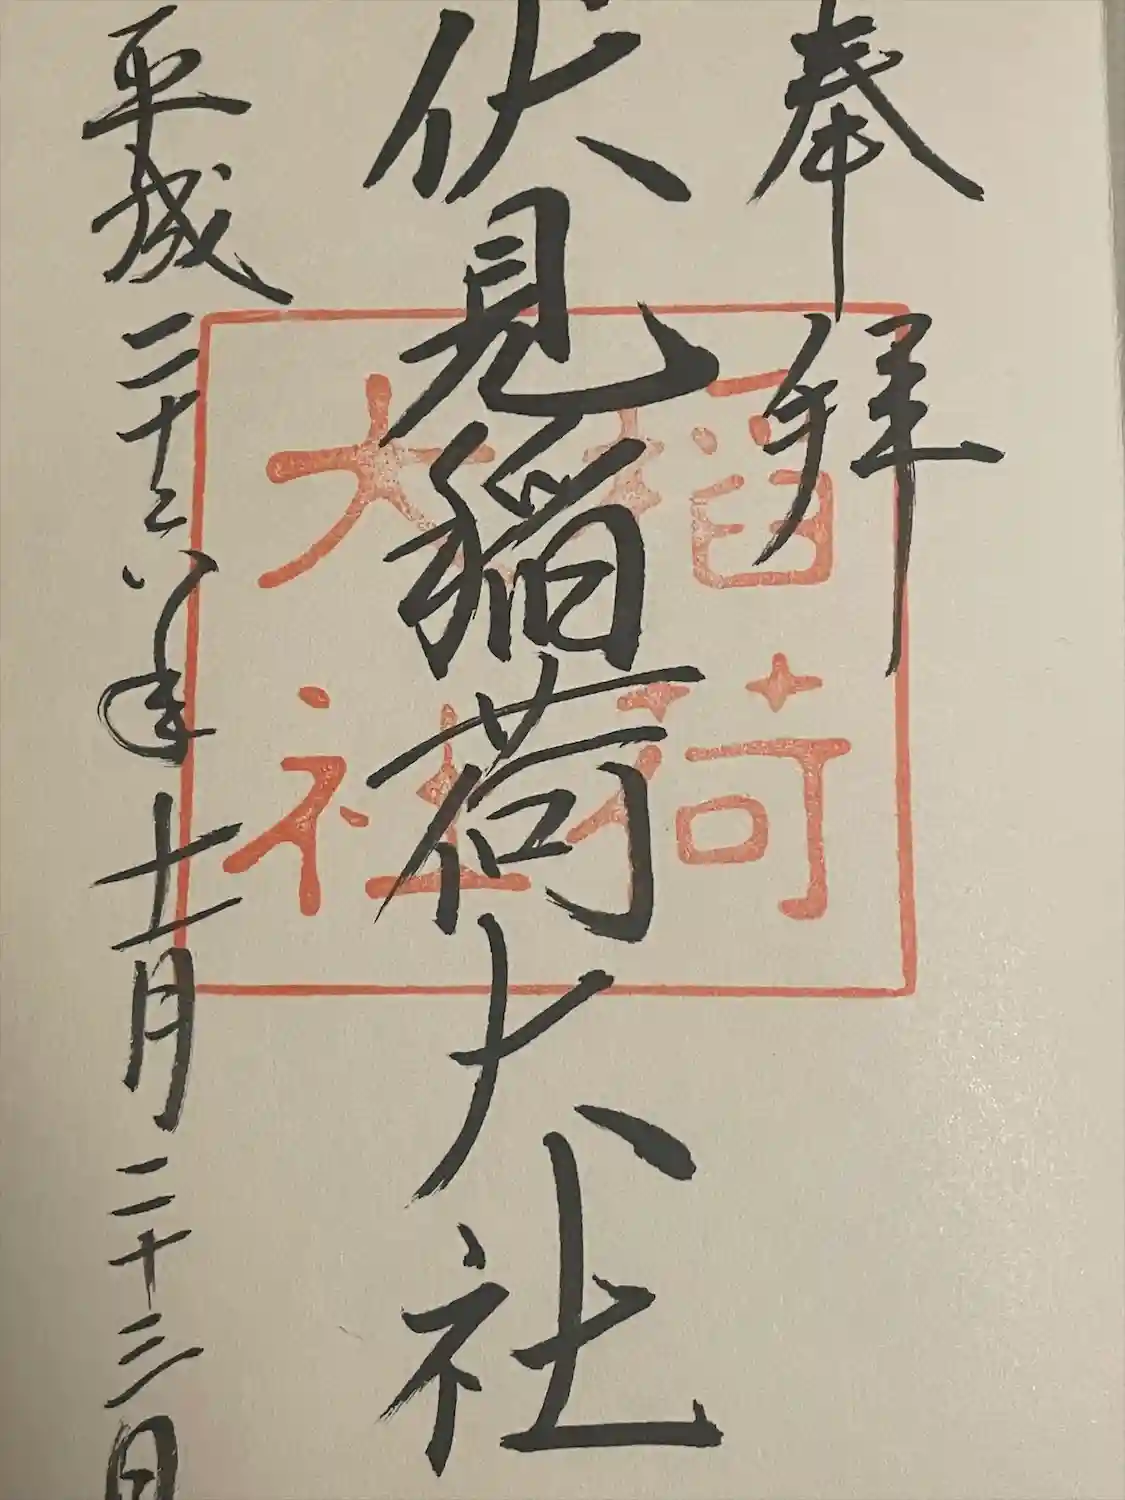 奉拝
伏見稲荷大社
平成二十六年十一月二十三日
稲荷
大社